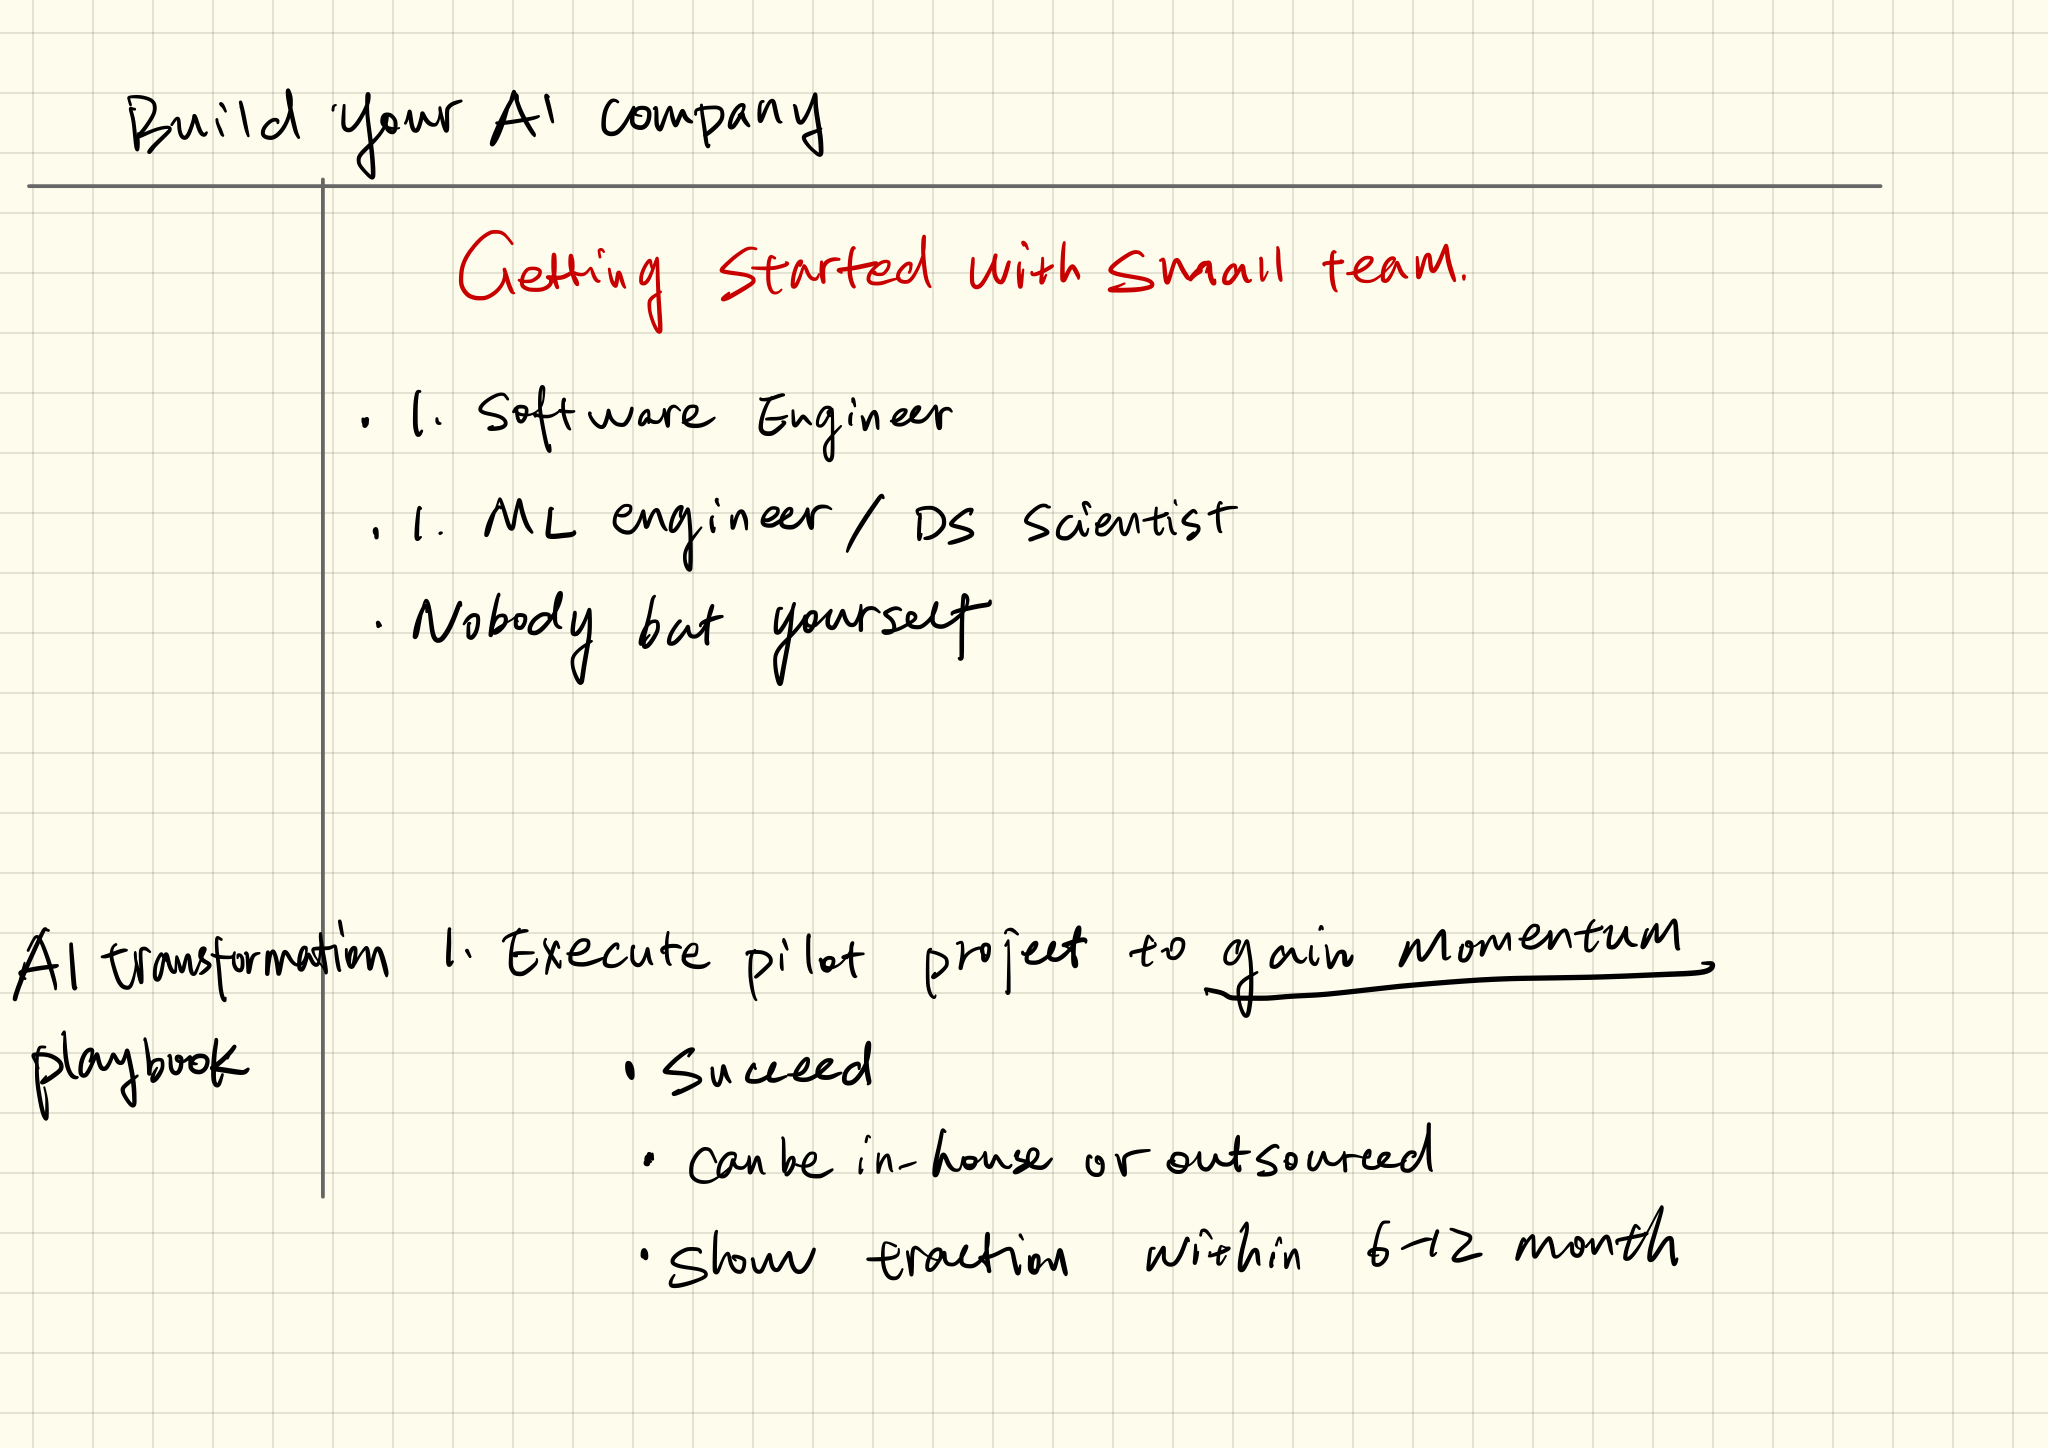 Build your AI company
Getting started with small team.
· 1. Software Engineer
· 1. ML engineer / DS scientist
· Nobody but yourself
AI transformation 1. Execute pilot project to gain momentum
playbook
· Succeed
· can be in-house or outsourced
· show traction within 6-12 month